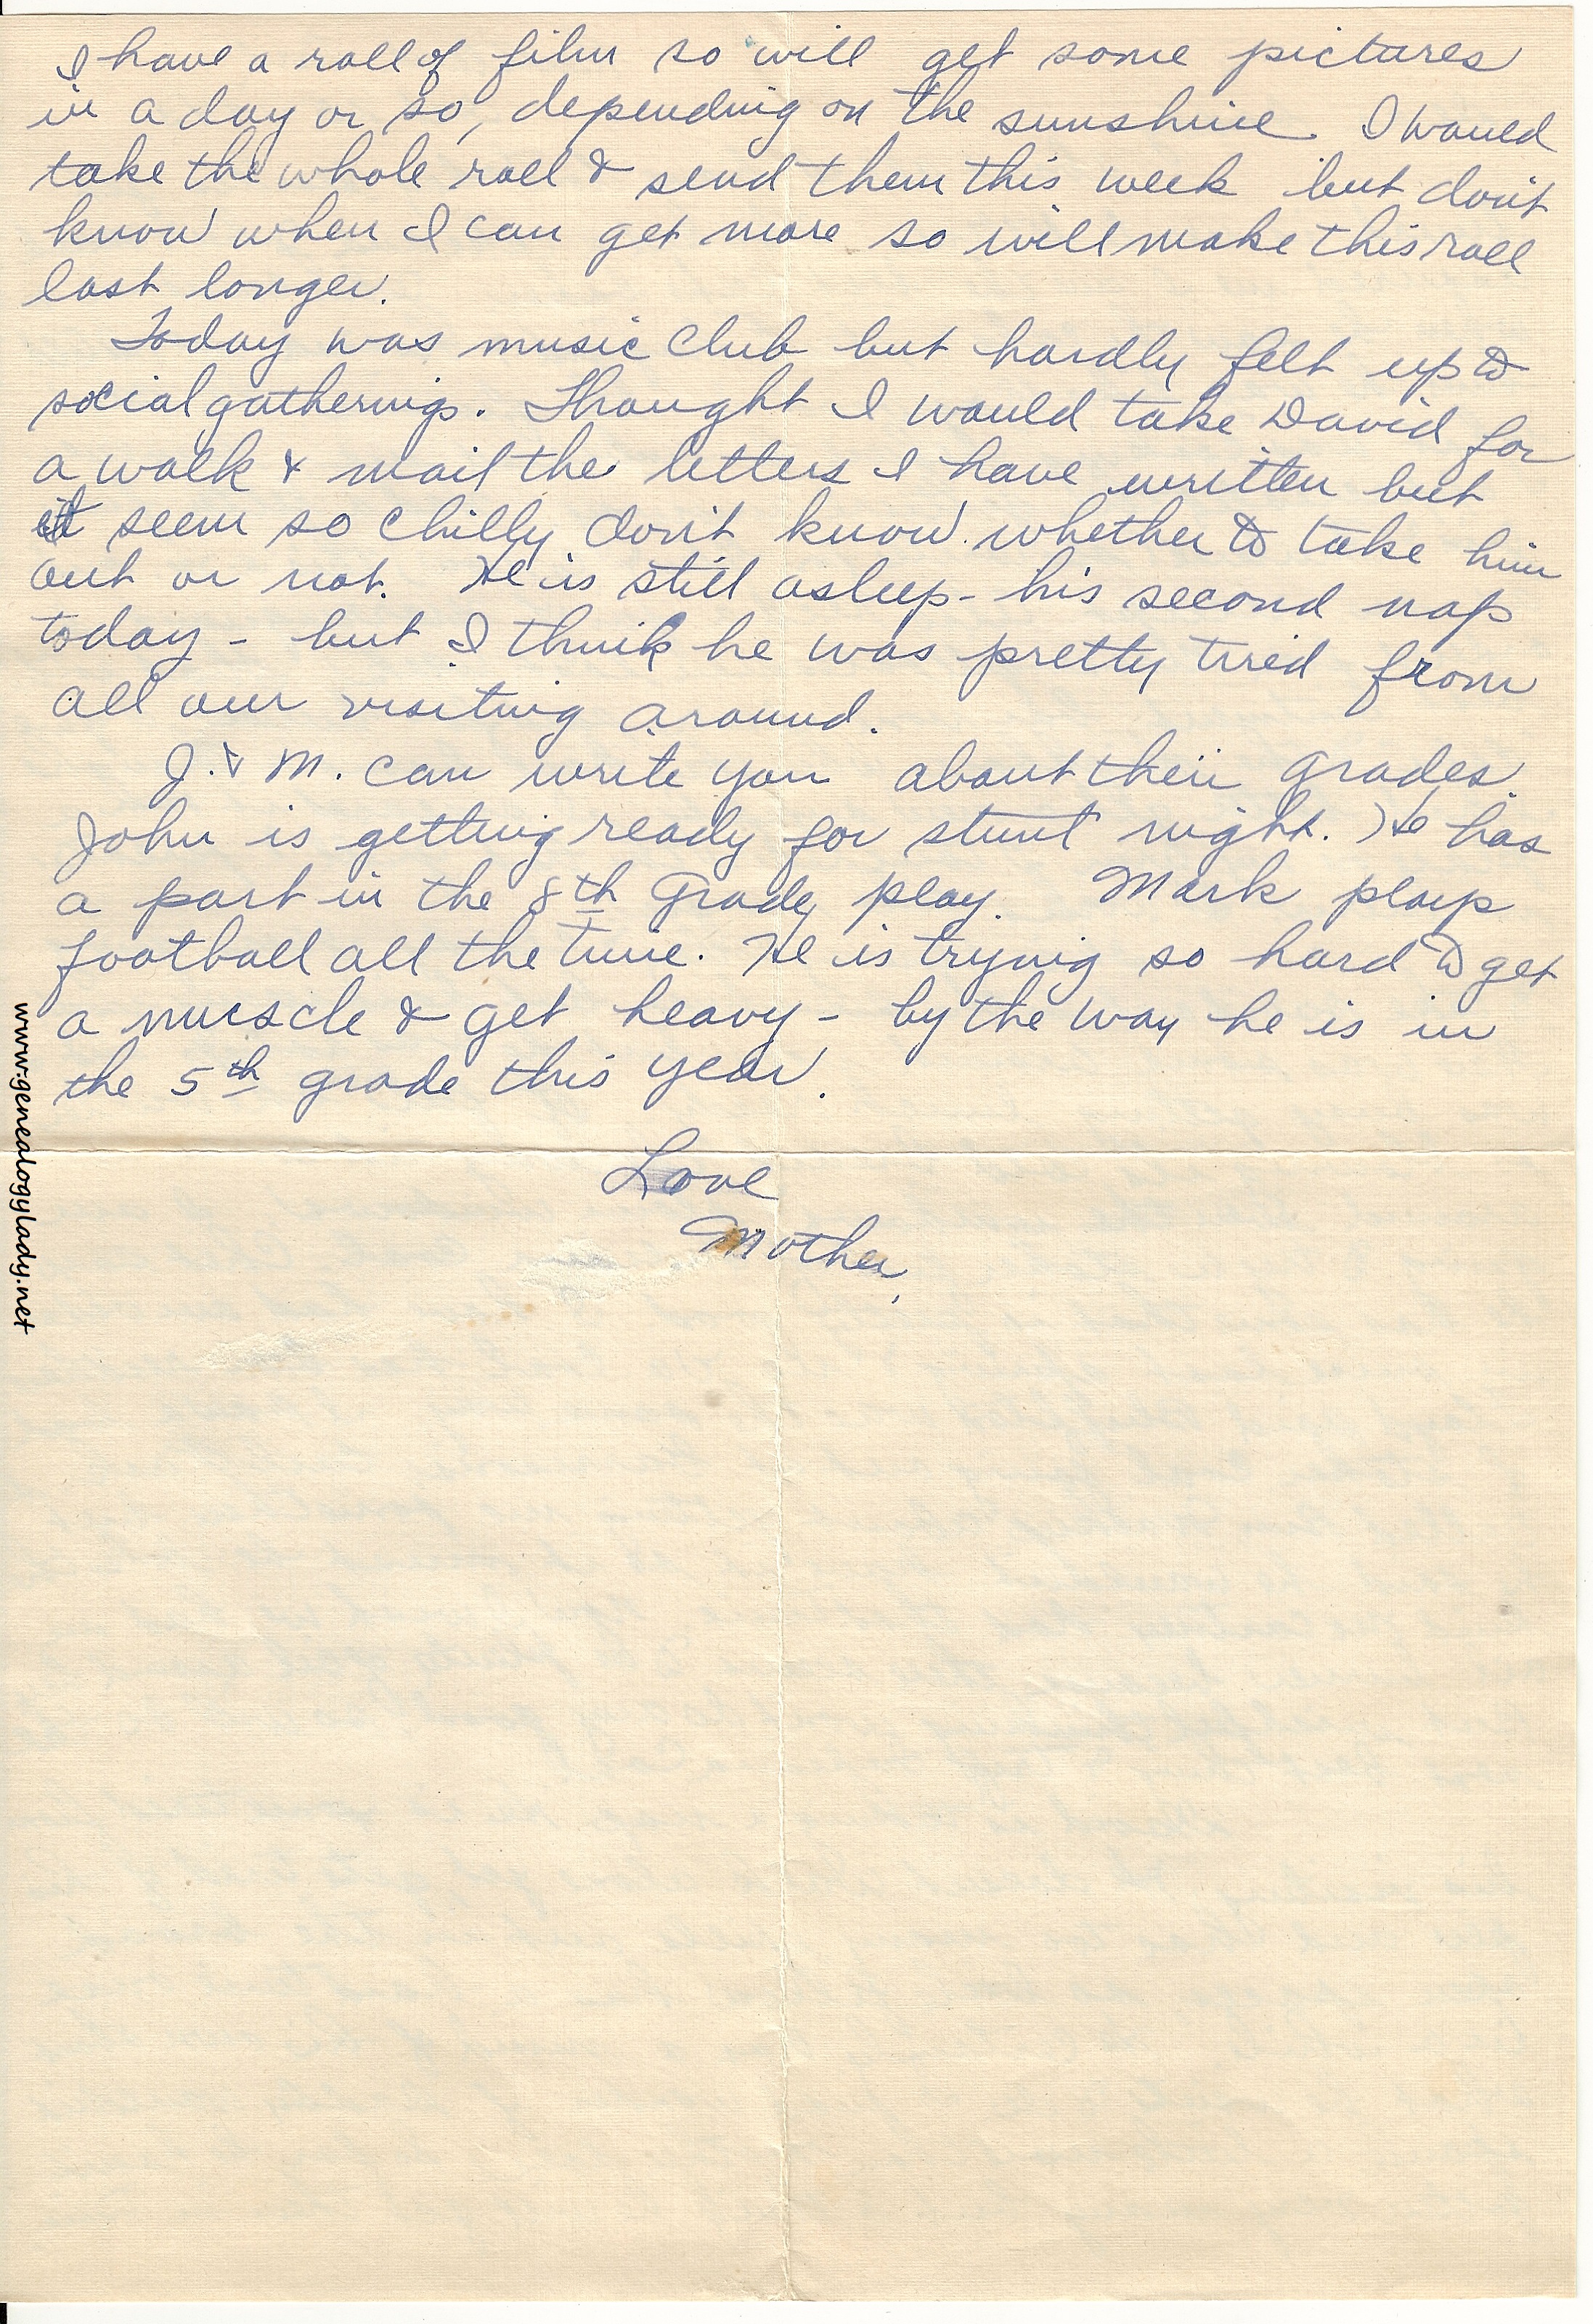 I have a roll of film so will get some pictures
in a day or so, depending on the sunshine. I would
take the whole roll & send them this week but don't
know when I can get more so will make this roll
last longer.
Today was music club but hardly felt up to
social gatherings. Thought I would take David for
a walk & mail the letters I have written but
it seem so chilly don't know whether to take him
out or not. He is still asleep - his second nap
today - but I think he was pretty tired from
all our visiting around.
J. & M. can write you about their grades.
John is getting ready for stunt night. He has
a part in the 8th Grade play. Mark plays
football all the time. He is trying so hard to get
a muscle & get heavy - by the way he is in
the 5th grade this year.
Love
Mother,
www.genealogylady.net